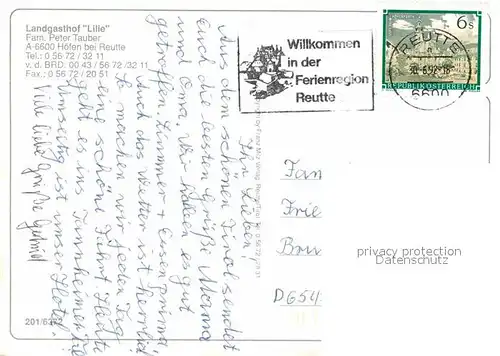 Landgasthof "Lilie"
Fam. Peter Tauber
A-6600 Höfen bei Reutte
Tel.: 0 56 72 / 32 11
v. d. BRD: 00 43 / 56 72 / 32 11
Fax.: 0 56 72 / 20 51
Willkommen
in der
Ferienregion
Reutte
REUTTE
6600
6s
REPUBLIK ÖSTERREICH
Ihr Lieben!
Aus dem schönen Tirol sendet
Euch die besten Grüße Mama
und Oma. Wir haben es gut
getroffen. Zimmer + Essen prima
Auch das Wetter ist herrlich
So machen wir jeden Tag
eine schöne Fahrt. Heute
geht es ins Tannheimer Tal
Umseitig ist unser Hotel.
Viele liebe Grüße
Fam
Frie
D 654
privacy protection
Datenschutz